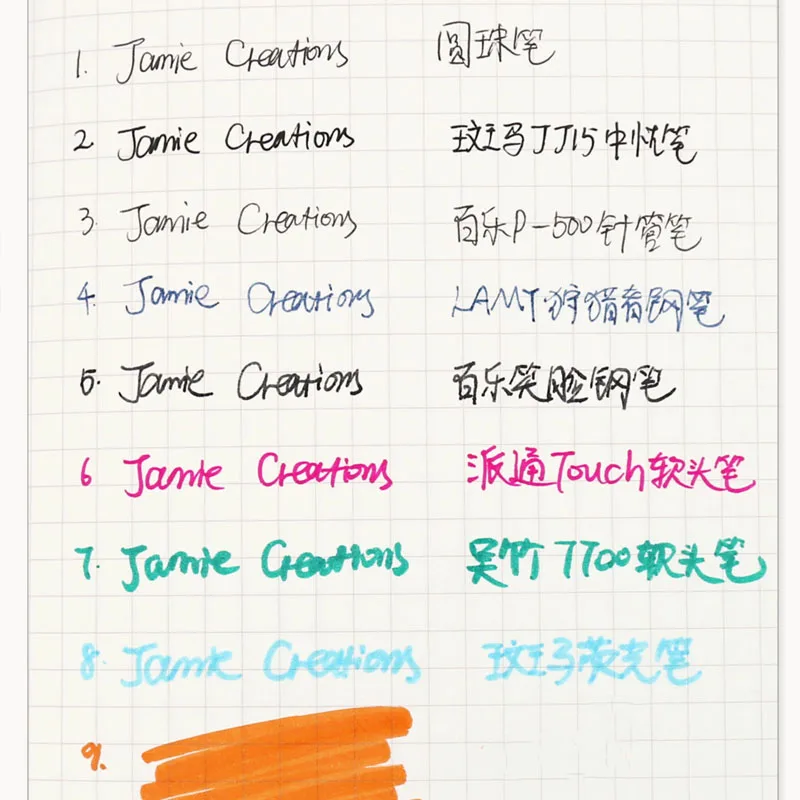 1. Jamie Creations 圆珠笔
2 Jamie Creations 斑马JJ15中性笔
3. Jamie Creations 百乐P-500针管笔
4. Jamie Creations LAMY狩猎者钢笔
5. Jamie Creations 百乐笑脸钢笔
6 Jamie Creations 派通Touch软头笔
7. Jamie Creations 吴竹7700软头笔
8. Jamie Creations 斑马荧光笔
9.